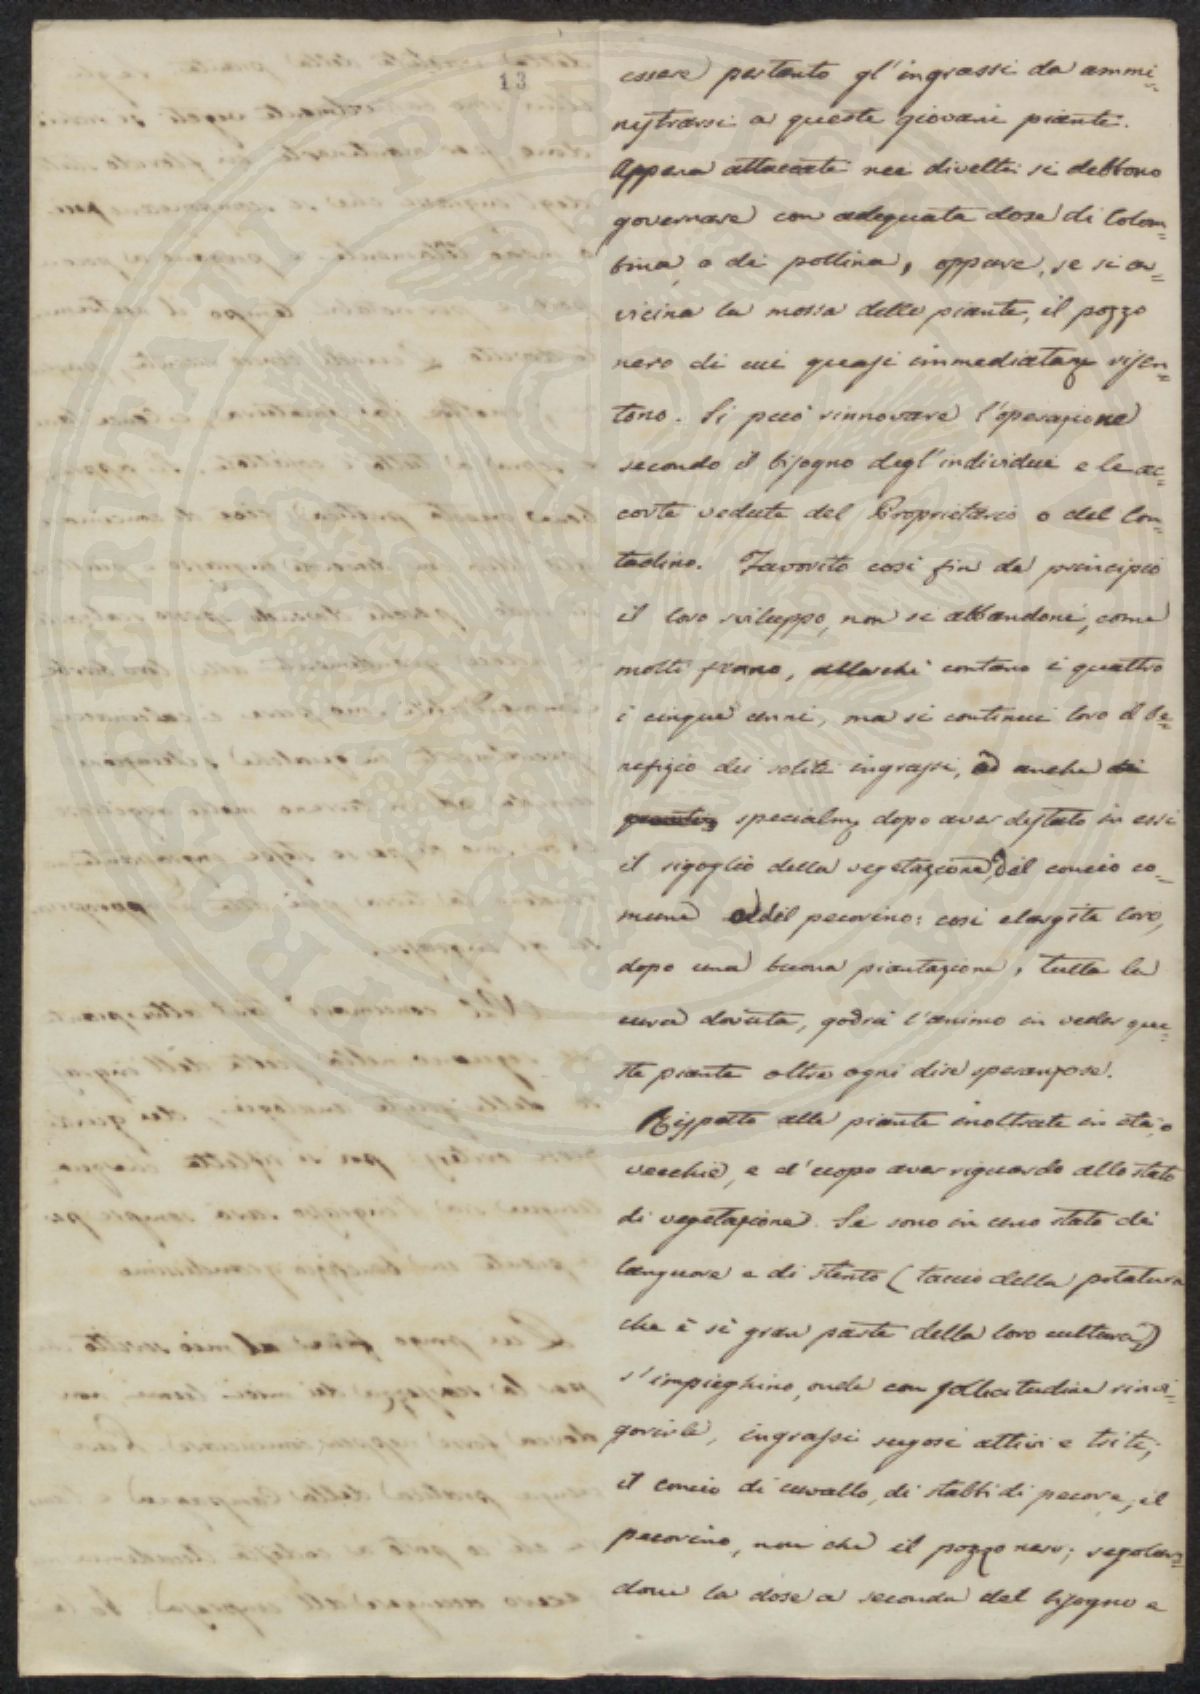 13
essere pertanto gl'ingrassi da ammi=
nistrarsi a queste giovani piante.
Appena attaccate nei divelti si debbono
governare con adeguata dose di Colom=
bina, o di pollina, oppure, se si av=
vicina la mossa delle piante, il pozzo
nero di cui quasi immediatam risen=
tono. Si può rinnovare l'operazione
secondo il bisogno degl'individui e le ac=
corte vedute del Proprietario o del Con=
tadino. Favorito così fin da principio
il loro sviluppo, non si abbandoni, come
molti fanno, allorchè contano i quattro
i cinque anni, ma si continui loro il be=
nefizio dei soliti ingrassi, ed anche
specialm dopo aver destato in essi
il rigoglio della vegetazione, del concio co=
mune e del pecorino: così elargita loro,
dopo una buona piantagione, tutta la
cura dovuta, godrà l'animo in veder que=
ste piante oltre ogni dire speranzose.
Rispetto alle piante inoltrate in età, o
vecchie, e d'uopo aver riguardo allo stato
di vegetazione. Se sono in uno stato di
languore e di stento (taccio della potatura
che è sì gran parte della loro cultura)
s'impieghino, onde con sollecitudine rinvi=
gorirle, ingrassi sugosi attivi e triti;
il concio di cavallo, di stabbi di pecore, il
pecorino, non che il pozzo nero; regolan=
done la dose a seconda del bisogno e